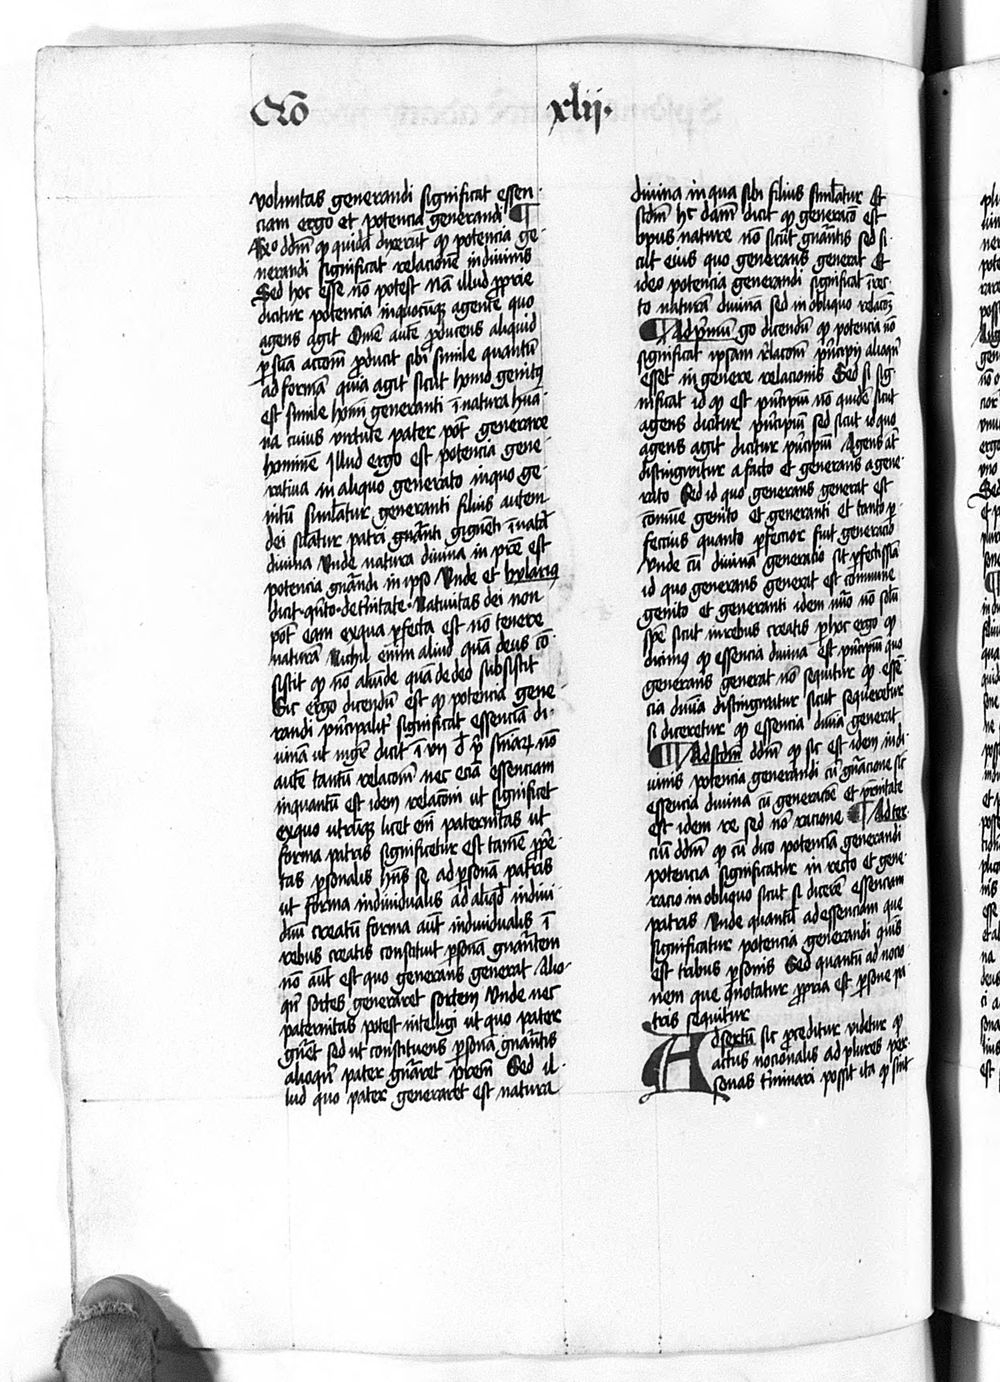 Qō xlij·
voluntas generandi significat essen·
ciam ergo et potencia generandi ¶
Reo dd̄m ꝙ quidā dixerūt ꝙ potencia ge·
nerandi significat relacionē in diuinis
Sed hoc esse nō potest Nā illud ꝓprie
dicitur potencia in quocūqꝫ agente quo
agens agit Om̄e autē ꝓducens aliquid
ꝑ suā accōm ꝓducit sibi simile quantū
ad formā quia agit sicut homo genitꝯ
est simile homī generanti ī natura hūa·
na cuius virtute pater pōt generare
hominē Illud ergo est potencia gene·
ratiua in aliquo generato in quo ge·
nitū simlatur generanti filius autem
dei silatur patri gnanti gignēti ī natā
diuina Vnde natura diuina in pr̄e est
potencia gnandi in ipso Vnde et hylariꝯ
dicit·qnto·de trinitate·Natiuitas dei non
pōt eam ex qua ꝑfecta est nō tenere
naturā Nichil enim aliud quā deus cō·
sistit ꝙ nō aliunde quā de deo subsistit
Sic ergo dicendū est ꝙ potencia gene·
randi pncipalitˀ significat essenciā di·
uinā ut mgr̄ dicit ī vij d p̄ sniarꝝ nō
autē tantū relacōm nec eciā essenciam
inquantū est idem relacōni ut significet
ex quo utrūqꝫ licet eni paternitas ut
forma patris significetur est tamē ꝓpe·
tas ꝑsonalis hn̄s se ad ꝑsonā patris
ut forma indiuidualis ad aliqd̄ indiui·
duū creatū forma aut̄ indiuidualis ī
rebus creatis constituit ꝑsonā gnantem
nō aut̄ est quo generans generat Alio·
qn̄ sortes generaret sortem Vnde nec
paternitas potest intelligi ut quo pater
gnet sed ut constituens ꝑsonā gnantis
alioqn̄ pater gnaret pr̄em Sed il·
lud quo pater generaret est natura
diuina in qua sibi filius simlatur Et
scdm hc dām dicit ꝙ generacō est
opus nature nō sicut gnantis sed si·
cut eius quo generans generat Et
ideo potencia generandi significat ī rec·
to naturā diuinā sed in obliquo relacōꝫ
¶ Ad pmū go dicendū ꝙ potencia nō
significat ipsam rlacom pncipij alioqn̄
esset in genere relacionis Sed si sig·
nificat id ꝙ est pncipiū nō quidē sicut
agens dicitur pncipiū sed sicut id quo
agens agit dicitur pncipiū Agens at̄
distingwitur a facto et generans a gene·
rato Sed id quo generans generat est
cōmūe genito et generanti et tanto ꝑ·
feccius quanto ꝑfectior fiut generacio
Vnde cū diuina generacio sit ꝑfectissiā
id quo generans generat est cōmune
genito et generanti idem nūo nō solū
spē sicut in rebus creatis ꝑ hoc ergo ꝙ
dicimꝯ ꝙ essencia diuina est pncipiū quo
generans generat nōn sequitur ꝙ essē·
cia diuina distingwatur sicut sequeretur
si diceretur ꝙ essencia diuina generat
¶ Ad scdm dd̄m ꝙ sic est idem in di·
uinis potencia generandi cū gnacione sic
essencia diuina cū generacōe et pnitate
est idem re sed nō racione ¶ Ad ter·
ciū dd̄m ꝙ cū dico potenciā generandi
potencia significatur in recto et gene·
racio in obliquo sicut si dicerē essenciam
patris Vnde quantū ad essenciam que
significatur potencia generandi qm̄s
est tribus ꝑsonis Sed quantū ad nocio·
nem que gnotatur ꝓpria est ꝑsone pa·
tris sequitur
Ad sextū sic ꝓceditur videtur ꝙ
actus nocionalis ad plures per·
sonas tminari possit ita ꝙ sint